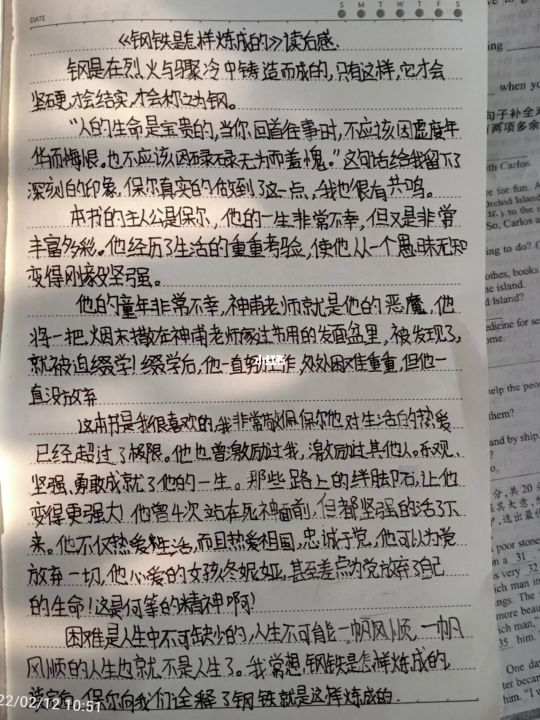 DATE
S M T W T F S
《钢铁是怎样炼成的》读后感.
钢是在烈火与骤冷中铸造而成的,只有这样,它才会
坚硬,才会结实,才会称之为钢。
"人的生命是宝贵的,当你回首往事时,不应该因虚度年
华而悔恨。也不应该因碌碌无为而羞愧。"这句话给我留下了
深刻的印象,保尔真实的做到了这一点,我也很有共鸣。
本书的主人公是保尔,他的一生非常不幸,但又是非常
丰富多彩。他经历了生活的重重考验,使他从一个愚昧无知
变得刚毅坚强。
他的童年非常不幸,神甫老师就是他的恶魔,他
将一把烟末撒在神甫老师家过节用的发面盆里,被发现了,
就被迫缀学!缀学后,他一直努力工作,处处困难重重,但他一
直没放弃
小红书
这本书是我很喜欢的,我非常敬佩保尔他对生活的热爱
已经超过了极限。他也曾激励过我,激励过其他人。乐观、
坚强、勇敢成就了他的一生。那些路上的绊脚石,让他
变得更强大!他曾4次站在死神面前,但都坚强的活了下
来。他不仅热爱生活,而且热爱祖国,忠诚于党,他可以为党
放弃一切,他心爱的女孩冬妮娅,甚至差点为党放弃了自己
的生命!这是何等的精神啊!
困难是人生中不可缺少的,人生不可能一帆风顺,一帆
风顺的人生也就不是人生了。我常想,钢铁是怎样炼成的,
保尔向我们诠释了钢铁就是这样炼成的.
22/02/12 10:51
ing
when you
句子补全对
有两项多余
th Carlos.
re for fun. A
Orchid Island
) to the
So, Carlos a
ing to do? (
othes, books
he island.
d Island?
edicine for se
ome.
help the peo
them?
and by ship.
?
o.
分,共20分
poor stone
n a 31
is very 32
ich man in
ngs. The
more beau
ich man,"
35 him.
One day
ter becam
him. "I w